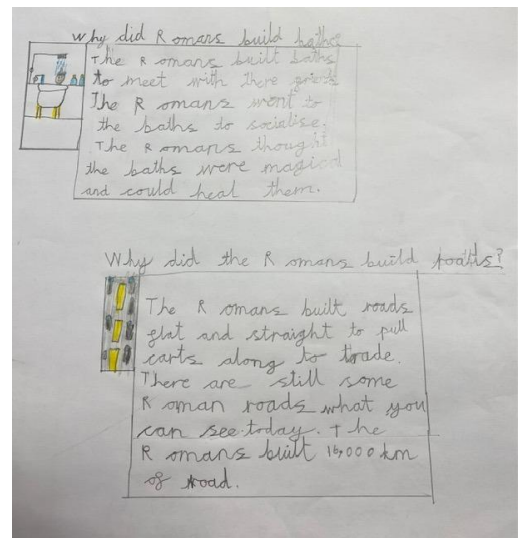 Why did Romans build baths?
The Romans built baths
to meet with there
The Romans went to
the baths to socialise.
The Romans thought
the baths were magical
and could heal them.
Why did the Romans build roads?
The Romans built roads
flat and straight to pull
carts along to trade.
There are still some
Roman roads what you
can see today. The
Romans built 16,000 km
of road.